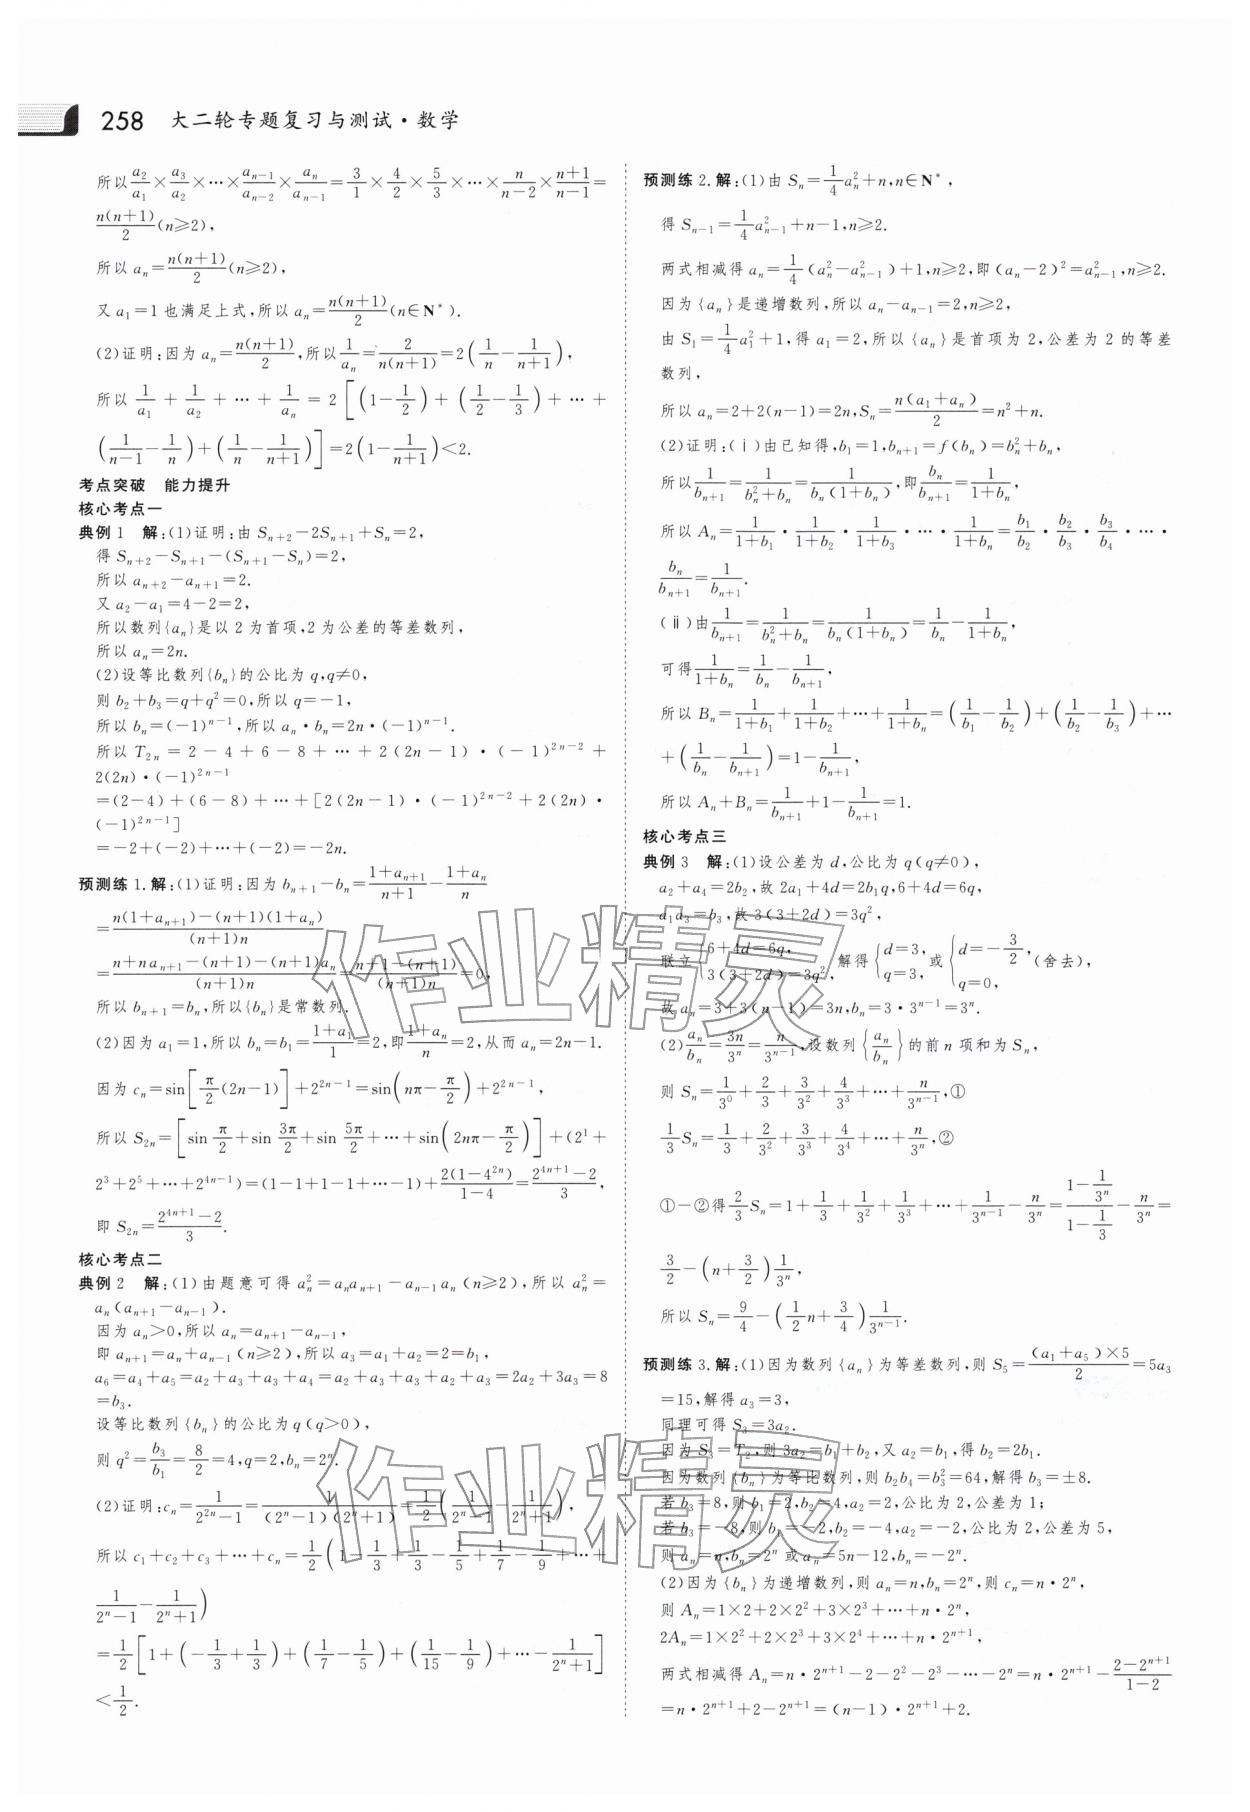 258 大二轮专题复习与测试·数学
所以a₂/a₁×a₃/a₂×…×aₙ₋₁/aₙ₋₂×aₙ/aₙ₋₁=3/1×4/2×5/3×…×n/(n-2)×(n+1)/(n-1)=
n(n+1)/2(n≥2),
所以 aₙ=n(n+1)/2(n≥2),
又 a₁=1 也满足上式,所以 aₙ=n(n+1)/2(n∈N*).
(2)证明:因为 aₙ=n(n+1)/2,所以1/aₙ=2/(n(n+1))=2(1/n-1/(n+1)),
所以 1/a₁+1/a₂+…+1/aₙ=2[(1-1/2)+(1/2-1/3)+…+
(1/(n-1)-1/n)+(1/n-1/(n+1))]=2(1-1/(n+1))<2.
考点突破 能力提升
核心考点一
典例 1 解:(1)证明:由 Sₙ₊₂-2Sₙ₊₁+Sₙ=2,
得 Sₙ₊₂-Sₙ₊₁-(Sₙ₊₁-Sₙ)=2,
所以 aₙ₊₂-aₙ₊₁=2.
又 a₂-a₁=4-2=2,
所以数列{aₙ}是以 2 为首项,2 为公差的等差数列,
所以 aₙ=2n.
(2)设等比数列{bₙ}的公比为 q,q≠0,
则 b₂+b₃=q+q²=0,所以 q=-1,
所以 bₙ=(-1)ⁿ⁻¹,所以 aₙ·bₙ=2n·(-1)ⁿ⁻¹.
所以 T₂ₙ=2-4+6-8+…+2(2n-1)·(-1)²ⁿ⁻²+
2(2n)·(-1)²ⁿ⁻¹
=(2-4)+(6-8)+…+[2(2n-1)·(-1)²ⁿ⁻²+2(2n)·
(-1)²ⁿ⁻¹]
=-2+(-2)+…+(-2)=-2n.
预测练 1.解:(1)证明:因为 bₙ₊₁-bₙ=(1+aₙ₊₁)/(n+1)-(1+aₙ)/n
=(n(1+aₙ₊₁)-(n+1)(1+aₙ))/((n+1)n)
=(n+naₙ₊₁-(n+1)-(n+1)aₙ)/((n+1)n)=(n+1-(n+1))/((n+1)n)=0,
所以 bₙ₊₁=bₙ,所以{bₙ}是常数列.
(2)因为 a₁=1,所以 bₙ=b₁=(1+a₁)/1=2,即(1+aₙ)/n=2,从而 aₙ=2n-1.
因为 cₙ=sin[π/2(2n-1)]+2²ⁿ⁻¹=sin(nπ-π/2)+2²ⁿ⁻¹,
所以 S₂ₙ=[sin π/2+sin 3π/2+sin 5π/2+…+sin(2nπ-π/2)]+(2¹+
2³+2⁵+…+2⁴ⁿ⁻¹)=(1-1+1-1+…-1)+2(1-4²ⁿ)/(1-4)=(2⁴ⁿ⁺¹-2)/3,
即 S₂ₙ=(2⁴ⁿ⁺¹-2)/3.
核心考点二
典例 2 解:(1)由题意可得 aₙ²=aₙaₙ₊₁-aₙ₋₁aₙ(n≥2),所以 aₙ²=
aₙ(aₙ₊₁-aₙ₋₁).
因为 aₙ>0,所以 aₙ=aₙ₊₁-aₙ₋₁,
即 aₙ₊₁=aₙ+aₙ₋₁(n≥2),所以 a₃=a₁+a₂=2=b₁,
a₆=a₄+a₅=a₂+a₃+a₃+a₄=a₂+a₃+a₃+a₂+a₃=2a₂+3a₃=8
=b₃.
设等比数列{bₙ}的公比为 q(q>0),
则 q²=b₃/b₁=8/2=4,q=2,bₙ=2ⁿ.
(2)证明:cₙ=1/(2²ⁿ-1)=1/((2ⁿ-1)(2ⁿ+1))=1/2(1/(2ⁿ-1)-1/(2ⁿ+1)),
所以 c₁+c₂+c₃+…+cₙ=1/2(1-1/3+1/3-1/5+1/7-1/9+…+
1/(2ⁿ-1)-1/(2ⁿ+1))
=1/2[1+(-1/3+1/3)+(1/7-1/5)+(1/15-1/9)+…-1/(2ⁿ+1)]
<1/2.
预测练 2.解:(1)由 Sₙ=1/4aₙ²+n,n∈N*,
得 Sₙ₋₁=1/4aₙ₋₁²+n-1,n≥2.
两式相减得 aₙ=1/4(aₙ²-aₙ₋₁²)+1,n≥2,即(aₙ-2)²=aₙ₋₁²,n≥2.
因为{aₙ}是递增数列,所以 aₙ-aₙ₋₁=2,n≥2,
由 S₁=1/4a₁²+1,得 a₁=2,所以{aₙ}是首项为 2,公差为 2 的等差
数列,
所以 aₙ=2+2(n-1)=2n,Sₙ=n(a₁+aₙ)/2=n²+n.
(2)证明:(ⅰ)由已知得,b₁=1,bₙ₊₁=f(bₙ)=bₙ²+bₙ,
所以1/bₙ₊₁=1/(bₙ²+bₙ)=1/(bₙ(1+bₙ)),即bₙ/bₙ₊₁=1/(1+bₙ),
所以 Aₙ=1/(1+b₁)·1/(1+b₂)·1/(1+b₃)·…·1/(1+bₙ)=b₁/b₂·b₂/b₃·b₃/b₄·…·
bₙ/bₙ₊₁=1/bₙ₊₁.
(ⅱ)由1/bₙ₊₁=1/(bₙ²+bₙ)=1/(bₙ(1+bₙ))=1/bₙ-1/(1+bₙ),
可得1/(1+bₙ)=1/bₙ-1/bₙ₊₁,
所以 Bₙ=1/(1+b₁)+1/(1+b₂)+…+1/(1+bₙ)=(1/b₁-1/b₂)+(1/b₂-1/b₃)+…
+(1/bₙ-1/bₙ₊₁)=1-1/bₙ₊₁,
所以 Aₙ+Bₙ=1/bₙ₊₁+1-1/bₙ₊₁=1.
核心考点三
典例 3 解:(1)设公差为 d,公比为 q(q≠0),
a₂+a₄=2b₂,故 2a₁+4d=2b₁q,6+4d=6q,
a₁a₃=b₃,故 3(3+2d)=3q²,
联立{6+4d=6q, 3(3+2d)=3q², 解得{d=3, q=3, 或{d=-3/2, q=0, (舍去),
故 aₙ=3+3(n-1)=3n,bₙ=3·3ⁿ⁻¹=3ⁿ.
(2)aₙ/bₙ=3n/3ⁿ=n/3ⁿ⁻¹,设数列{aₙ/bₙ}的前 n 项和为 Sₙ,
则 Sₙ=1/3⁰+2/3+3/3²+4/3³+…+n/3ⁿ⁻¹,①
1/3Sₙ=1/3+2/3²+3/3³+4/3⁴+…+n/3ⁿ,②
①-②得2/3Sₙ=1+1/3+1/3²+1/3³+…+1/3ⁿ⁻¹-n/3ⁿ=(1-1/3ⁿ)/(1-1/3)-n/3ⁿ=
3/2-(n+3/2)1/3ⁿ,
所以 Sₙ=9/4-(1/2n+3/4)1/3ⁿ⁻¹.
预测练 3.解:(1)因为数列{aₙ}为等差数列,则 S₅=(a₁+a₅)×5/2=5a₃
=15,解得 a₃=3,
同理可得 S₃=3a₂.
因为 S₃=T₂,则 3a₂=b₁+b₂,又 a₂=b₁,得 b₂=2b₁.
因为数列{bₙ}为等比数列,则 b₂b₄=b₃²=64,解得 b₃=±8.
若 b₃=8,则 b₁=2,b₂=4,a₂=2,公比为 2,公差为 1;
若 b₃=-8,则 b₁=-2,b₂=-4,a₂=-2,公比为 2,公差为 5,
则 aₙ=n,bₙ=2ⁿ 或 aₙ=5n-12,bₙ=-2ⁿ.
(2)因为{bₙ}为递增数列,则 aₙ=n,bₙ=2ⁿ,则 cₙ=n·2ⁿ,
则 Aₙ=1×2+2×2²+3×2³+…+n·2ⁿ,
2Aₙ=1×2²+2×2³+3×2⁴+…+n·2ⁿ⁺¹,
两式相减得 Aₙ=n·2ⁿ⁺¹-2-2²-2³-…-2ⁿ=n·2ⁿ⁺¹-(2-2ⁿ⁺¹)/(1-2)
=n·2ⁿ⁺¹+2-2ⁿ⁺¹=(n-1)·2ⁿ⁺¹+2.
作业精灵
作业精灵